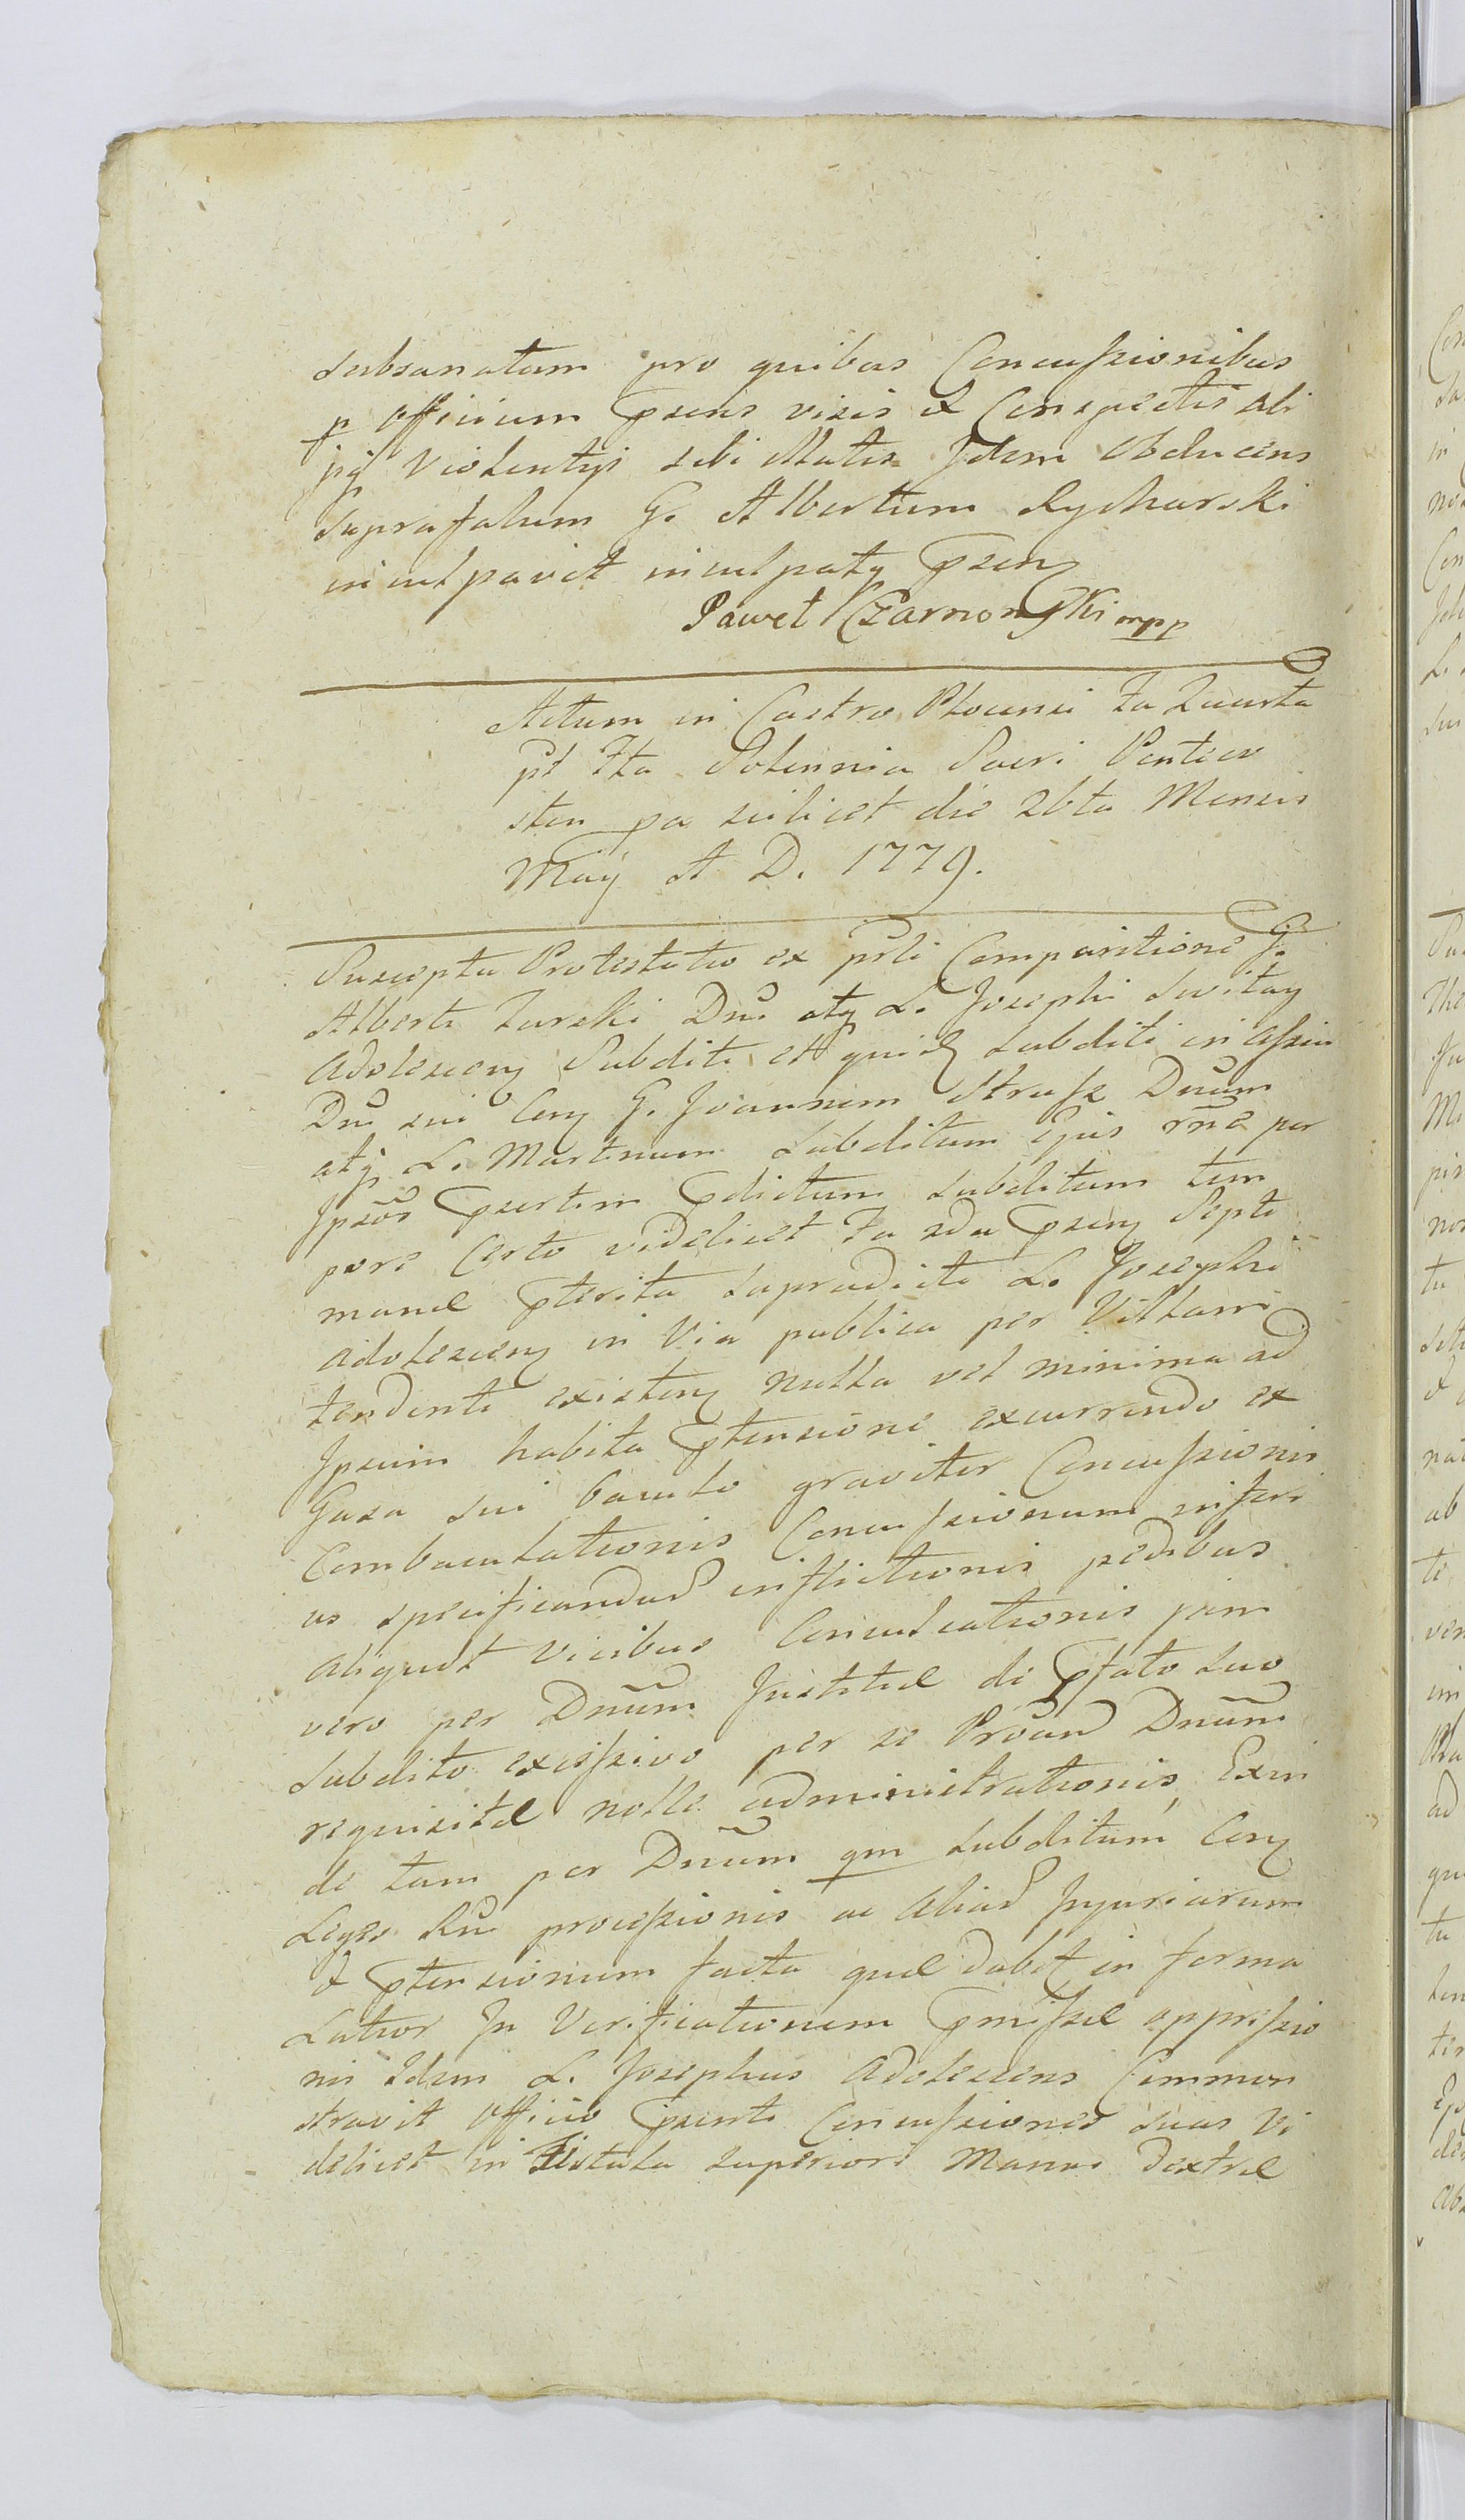 subsanatam pro quibus Concussionibus
p officium pnens visis et Conspectis ali
jsq violentys sibi illatis Idem Obducens
suprafatum G. Albertum Rycharski
inculpavit inculpatq psenq
Paweł Czarnomski mpp
Actum in Castro Plocensi Fa Quarta
pt Fta Solennia Sacri Penteco
sten pa scilicet die 26ta Mensis
May A D. 1779.
Suscepta Protestatio ex psli Comparitione G.
Alberti Turski Dni atq L. Josephi Switay
adolescenq Subditi et quid subditi in assia
Dni sui Conq G. Joannem Strusz Dnum
atq L. Martinum Subditum Ejus rne per
Ipsos psertim pdictum subditum tem
pore Certo videlicet Fa 2da psenq Septi
manae pterita supradicti L. Josephi
adolescenq in Via publica per Villam
tendenti existenq nulla vel minima ad
Ipsum habita ptensione excurrendo ex
Gaza sui baculo graviter Concussionis
Combaculationis Concussionum inferi
us specificandas inflictionis pedibus
aliquot vicibus Conculcationis jam
vero per Dnum Justitiae de pfato suo
Subdito excessivo per se Protan Dnum
requisitae nolle administrationis, Exin
de tam per Dnum qm subditum Conq
Leges Rni processionis ac alias Injuriarum
et ptensionum facta quae dabit in forma
Latior In Verificationem pmissae oppressio
nis Idem L. Josephus adolescens Commen
stravit Officio psenti Concussiones suas Vi
delicet in Fistula superiori Manus dextrae